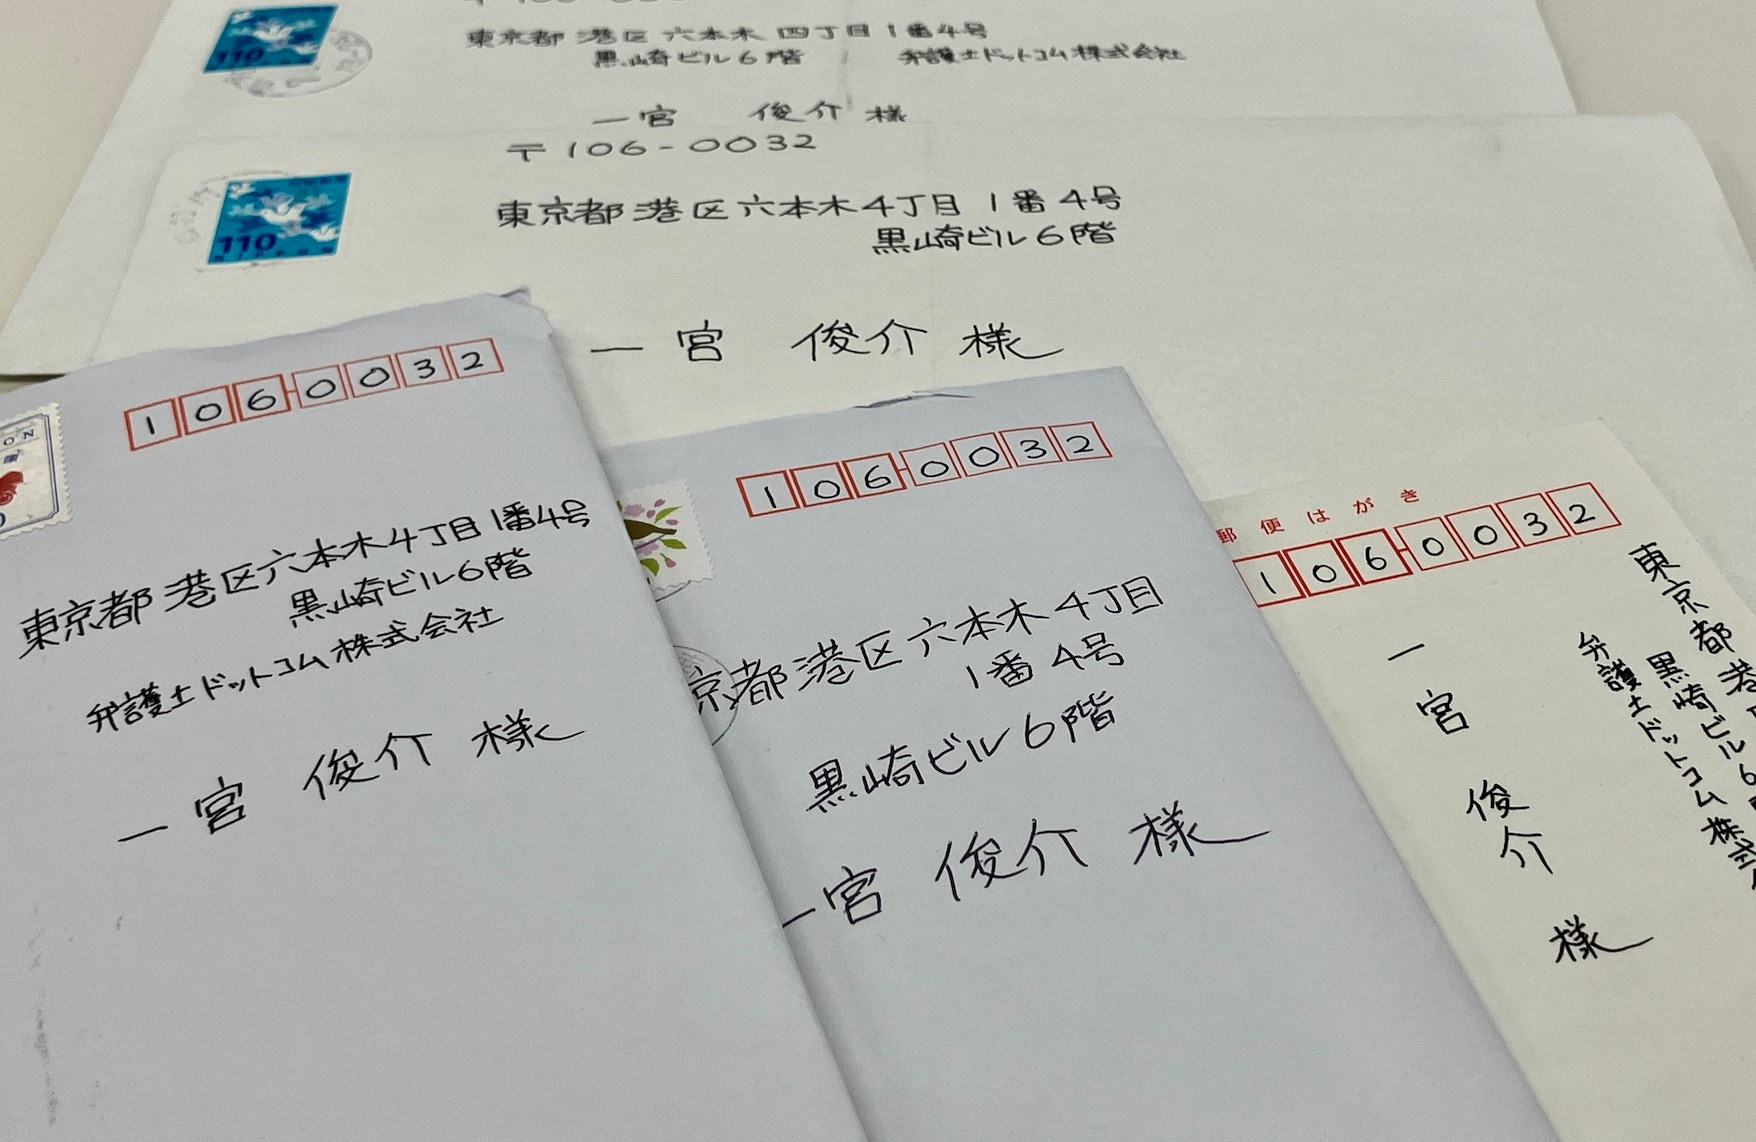 110
東京都港区六本木四丁目1番4号
黒崎ビル6階 弁護士ドットコム株式会社
一宮 俊介 様
〒106-0032
110
NIPPON
東京都港区六本木4丁目1番4号
黒崎ビル6階
一宮 俊介 様
1060032
東京都港区六本木4丁目1番4号
黒崎ビル6階
弁護士ドットコム株式会社
一宮 俊介 様
1060032
京都港区六本木4丁目
1番4号
黒崎ビル6階
一宮 俊介 様
郵便はがき
1060032
東京都港
黒崎ビル6
弁護士ドットコム株式
一宮 俊介 様